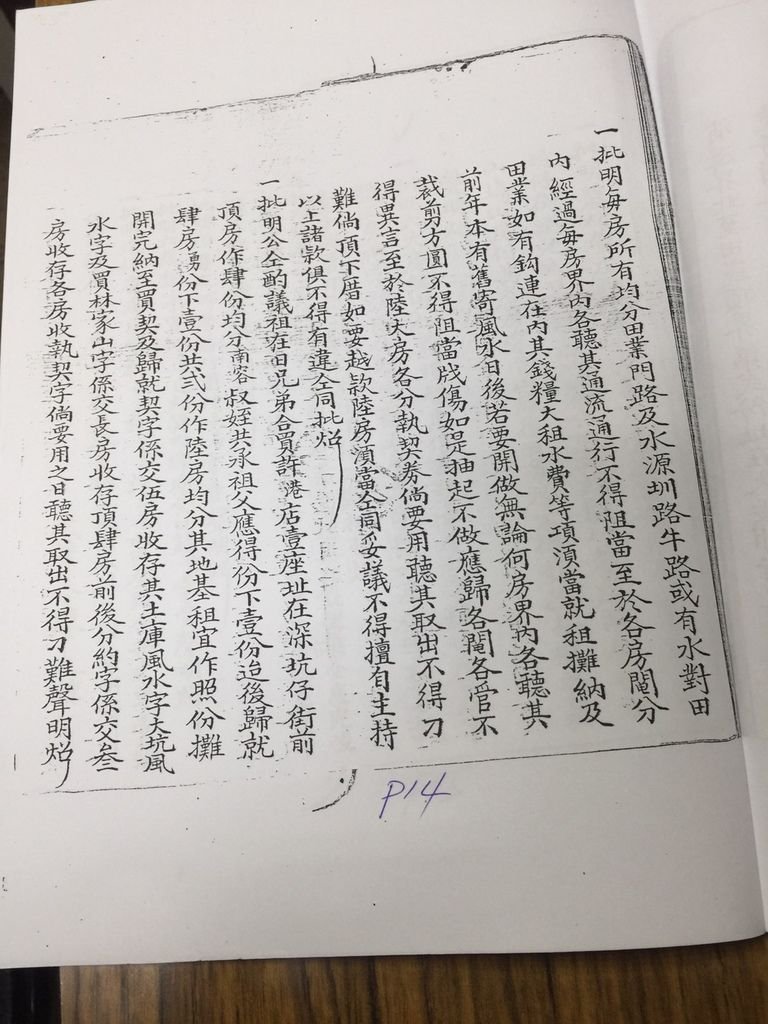 一批明每房所有均分田業門路及水源圳路牛路或有水對田
內經過每房界內各聽其通流通行不得阻當至於各房鬮分
田業如有鈎連在內其錢糧大租水費等項湏當就租攤納及
前年本有舊寄風水日後若要開做無論何房界內各聽其
裁剪方圓不得阻當戕傷如是抽起不做應歸各鬮各管不
得異言至於陸大房各分執契券倘要用聽其取出不得刁
難倘頂下厝如要越款陸房湏當仝同妥議不得擅自主持
以上諸款俱不得有違仝同批炤
一批明公仝酌議祖在日兄弟合買許港店壹座址在深坑仔街前
頂房作肆份均分南容叔姪共承祖父應得份下壹份迨後歸就
肆房勇份下壹份共弍份作陸房均分其地基租宜作照份攤
開完納至買契及歸就契字係交伍房收存其土庫風水字大坑風
水字及買林家山字係交長房收存頂肆房前後分約字係交叁
房收存各房收執契字倘要用之日聽其取出不得刁難聲明炤
P14